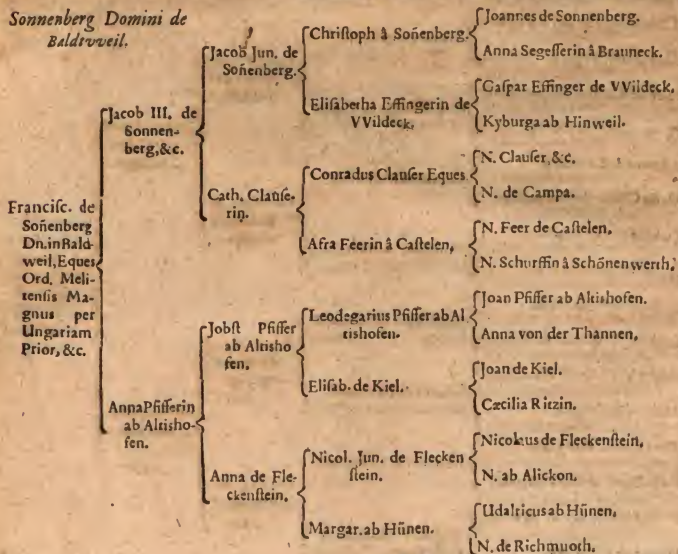 Sonnenberg Domini de
Baldtvveil.
Francisc. de
Soñenberg
Dn. in Bald-
weil, Eques
Ord. Meli-
tensis Ma-
gnus per
Ungariam
Prior, &c.
Jacob III. de
Sonnen-
berg, &c.
Anna Pfifferin
ab Altisho-
fen.
Jacob Jun. de
Soñenberg.
Cath. Clause-
rin.
Jobst Pfiffer
ab Altisho
fen,
Anna de Fle-
ckenstein,
Christoph â Soñenberg.
Elisabetha Effingerin de
VVildeck,
Conradus Clauser Eques
Afra Feerin â Castelen,
Leodegarius Pfiffer ab Al
tishofen.
Elisab. de Kiel.
Nicol. Jun. de Flecken
stein,
Margar. ab Hünen.
Joannes de Sonnenberg.
Anna Segesserin â Brauneck.
Gaspar Effinger de VVildeck,
Kyburga ab Hinweil.
N. Clauser, &c.
N. de Campa.
N. Feer de Castelen,
N. Schurffin â Schönenwerth,
Joan Pfiffer ab Altishofen.
Anna von der Thannen,
Joan de Kiel.
Cæcilia Ritzin,
Nicolaus de Fleckenstein,
N. ab Alickon.
Udalricus ab Hünen,
N. de Richmuoth,